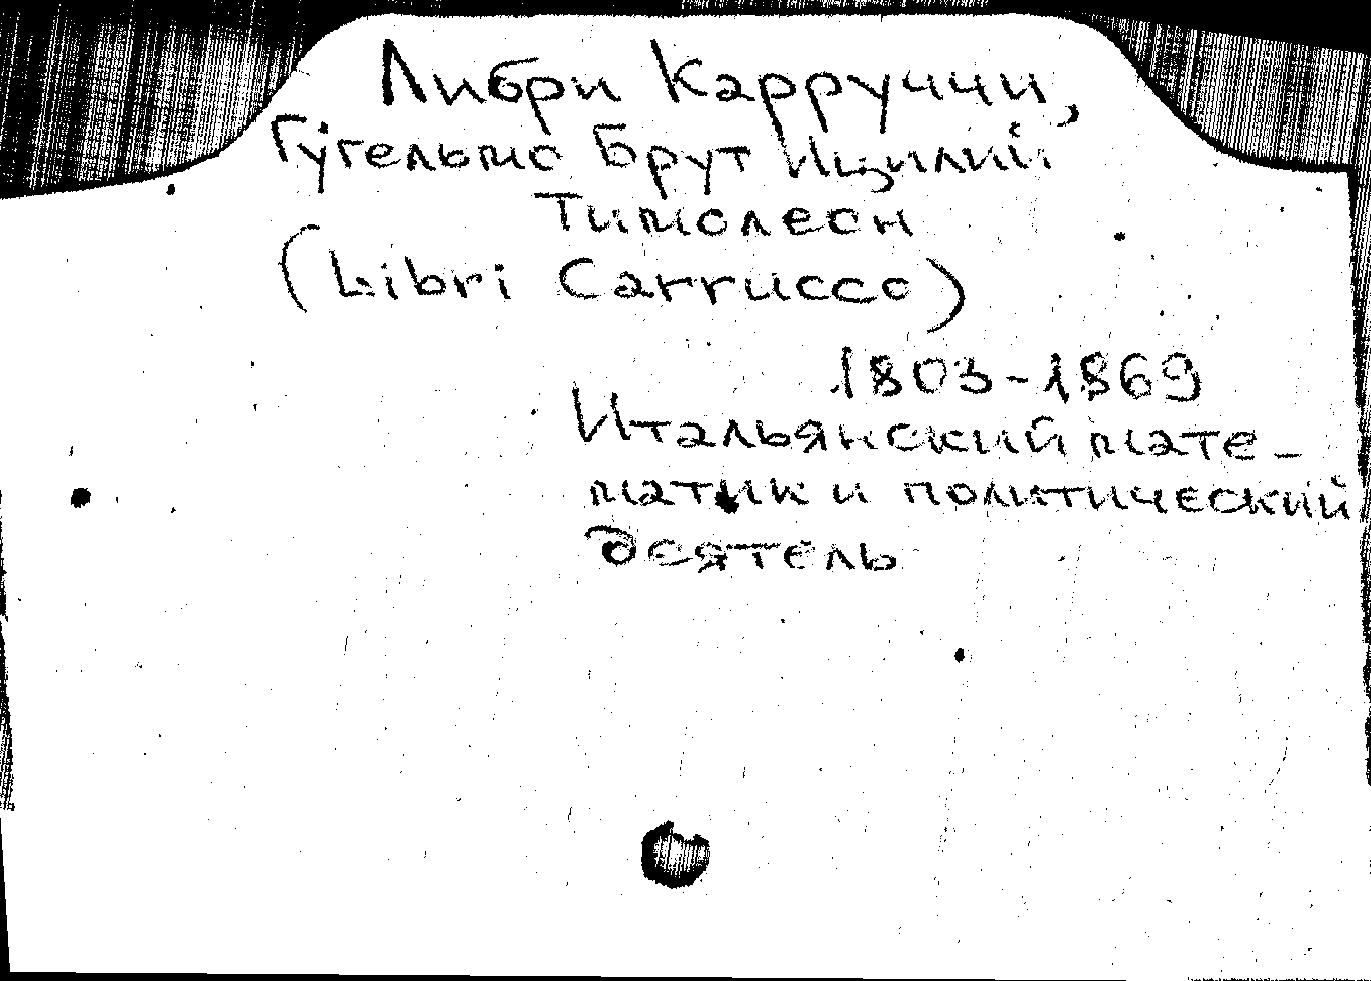 Либри Карруччи,
Гугельмо Брут Ицилий
Тимолеон
(Libri Carrucco)
1803-1869
Итальянский мате-
матик и политический
деятель